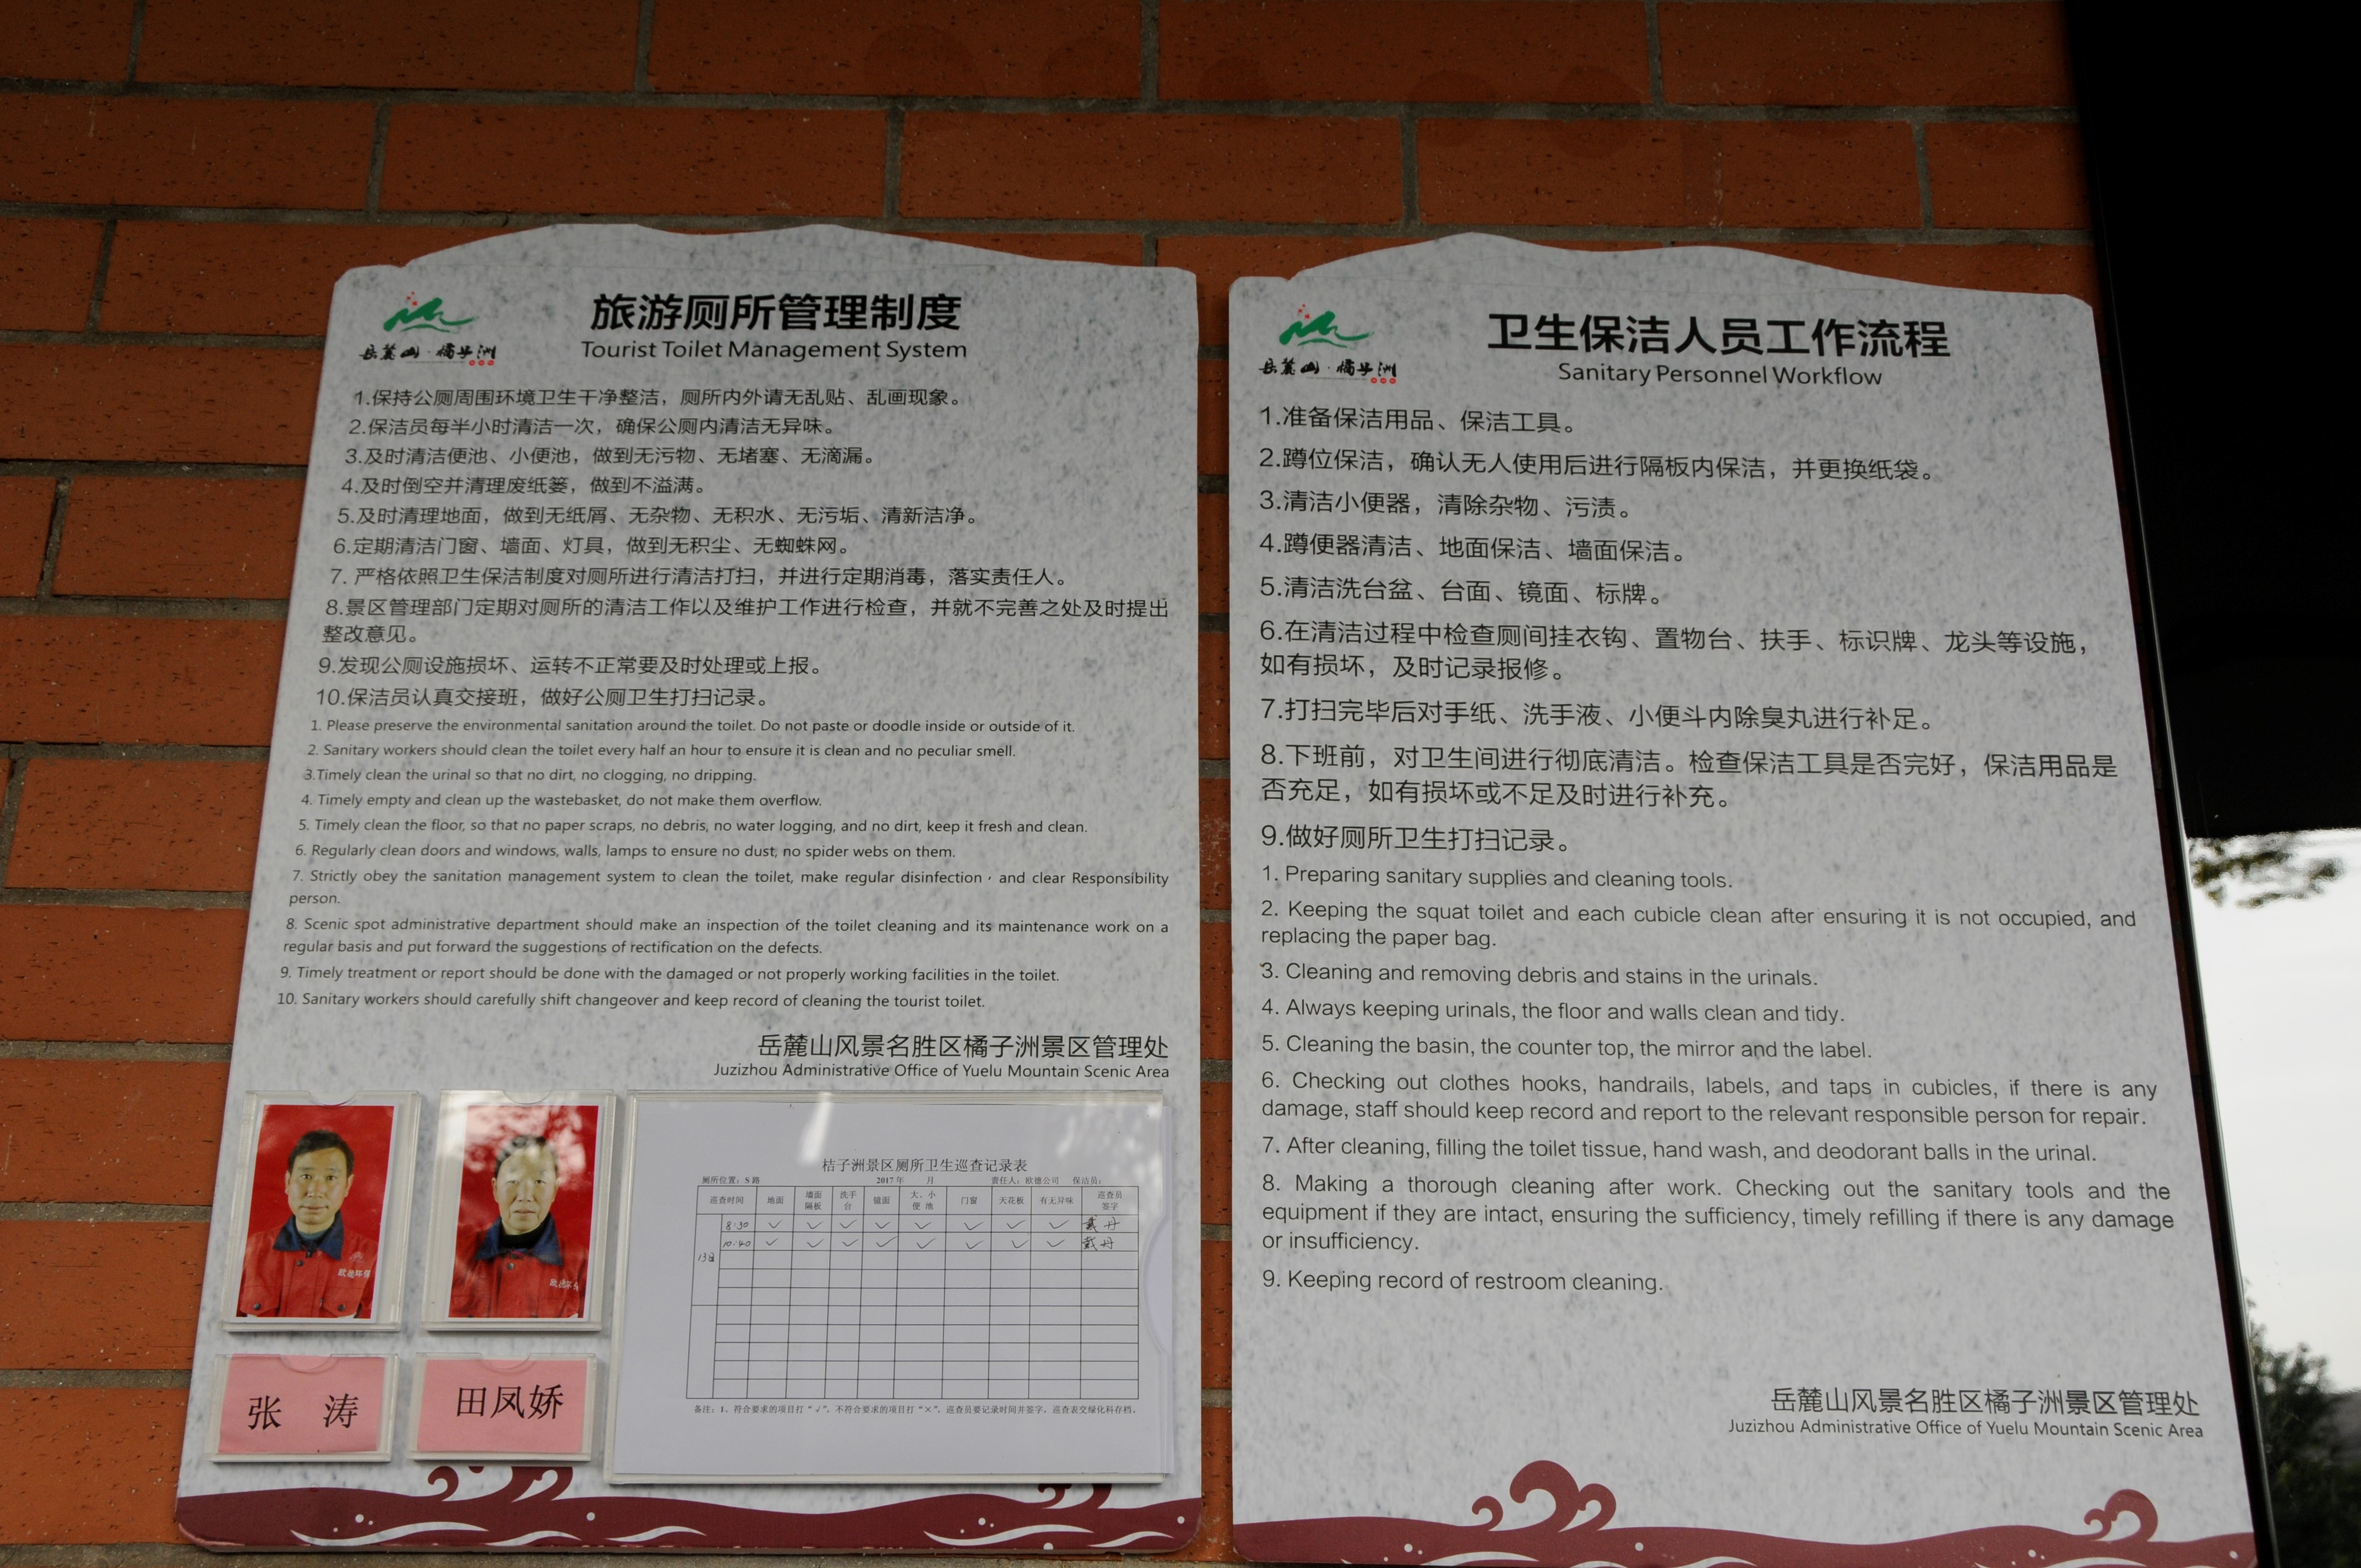 岳麓山·橘子洲
旅游厕所管理制度
Tourist Toilet Management System
1.保持公厕周围环境卫生干净整洁，厕所内外请无乱贴、乱画现象。
2.保洁员每半小时清洁一次，确保公厕内清洁无异味。
3.及时清洁便池、小便池，做到无污物、无堵塞、无滴漏。
4.及时倒空并清理废纸篓，做到不溢满。
5.及时清理地面，做到无纸屑、无杂物、无积水、无污垢、清新洁净。
6.定期清洁门窗、墙面、灯具，做到无积尘、无蜘蛛网。
7. 严格依照卫生保洁制度对厕所进行清洁打扫，并进行定期消毒，落实责任人。
8.景区管理部门定期对厕所的清洁工作以及维护工作进行检查，并就不完善之处及时提出
整改意见。
9.发现公厕设施损坏、运转不正常要及时处理或上报。
10.保洁员认真交接班，做好公厕卫生打扫记录。
1. Please preserve the environmental sanitation around the toilet. Do not paste or doodle inside or outside of it.
2. Sanitary workers should clean the toilet every half an hour to ensure it is clean and no peculiar smell.
3.Timely clean the urinal so that no dirt, no clogging, no dripping.
4. Timely empty and clean up the wastebasket, do not make them overflow.
5. Timely clean the floor, so that no paper scraps, no debris, no water logging, and no dirt, keep it fresh and clean.
6. Regularly clean doors and windows, walls, lamps to ensure no dust, no spider webs on them.
7. Strictly obey the sanitation management system to clean the toilet, make regular disinfection，and clear Responsibility
person.
8. Scenic spot administrative department should make an inspection of the toilet cleaning and its maintenance work on a
regular basis and put forward the suggestions of rectification on the defects.
9. Timely treatment or report should be done with the damaged or not properly working facilities in the toilet.
10. Sanitary workers should carefully shift changeover and keep record of cleaning the tourist toilet.
岳麓山风景名胜区橘子洲景区管理处
Juzizhou Administrative Office of Yuelu Mountain Scenic Area
欧德环保
欧德环保
张 涛
田凤娇
桔子洲景区厕所卫生巡查记录表
厕所位置：S路 2017年 月 责任人：欧德公司 保洁员：
巡查时间 地面 墙面隔板 洗手台 镜面 大、小便池 门窗 天花板 有无异味 巡查员签字
13日 8:30 ✓ ✓ ✓ ✓ ✓ ✓ ✓ ✓ 戴丹
10:40 ✓ ✓ ✓ ✓ ✓ ✓ ✓ ✓ 戴丹
备注：1、符合要求的项目打“√”，不符合要求的项目打“×”，巡查员要记录时间并签字，巡查表交绿化科存档。
岳麓山·橘子洲
卫生保洁人员工作流程
Sanitary Personnel Workflow
1.准备保洁用品、保洁工具。
2.蹲位保洁，确认无人使用后进行隔板内保洁，并更换纸袋。
3.清洁小便器，清除杂物、污渍。
4.蹲便器清洁、地面保洁、墙面保洁。
5.清洁洗台盆、台面、镜面、标牌。
6.在清洁过程中检查厕间挂衣钩、置物台、扶手、标识牌、龙头等设施，
如有损坏，及时记录报修。
7.打扫完毕后对手纸、洗手液、小便斗内除臭丸进行补足。
8.下班前，对卫生间进行彻底清洁。检查保洁工具是否完好，保洁用品是
否充足，如有损坏或不足及时进行补充。
9.做好厕所卫生打扫记录。
1. Preparing sanitary supplies and cleaning tools.
2. Keeping the squat toilet and each cubicle clean after ensuring it is not occupied, and
replacing the paper bag.
3. Cleaning and removing debris and stains in the urinals.
4. Always keeping urinals, the floor and walls clean and tidy.
5. Cleaning the basin, the counter top, the mirror and the label.
6. Checking out clothes hooks, handrails, labels, and taps in cubicles, if there is any
damage, staff should keep record and report to the relevant responsible person for repair.
7. After cleaning, filling the toilet tissue, hand wash, and deodorant balls in the urinal.
8. Making a thorough cleaning after work. Checking out the sanitary tools and the
equipment if they are intact, ensuring the sufficiency, timely refilling if there is any damage
or insufficiency.
9. Keeping record of restroom cleaning.
岳麓山风景名胜区橘子洲景区管理处
Juzizhou Administrative Office of Yuelu Mountain Scenic Area